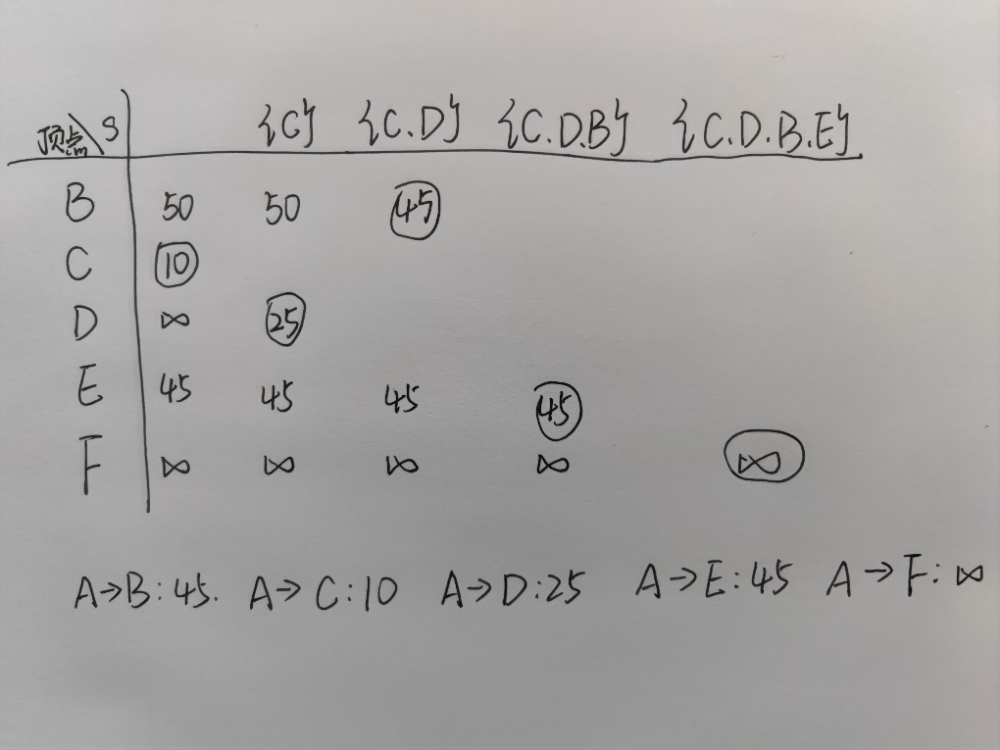 顶点\S {C} {C.D} {C.D.B} {C.D.B.E}
B 50 50 45
C 10
D ∞ 25
E 45 45 45 45
F ∞ ∞ ∞ ∞ ∞
A→B:45. A→C:10 A→D:25 A→E:45 A→F:∞